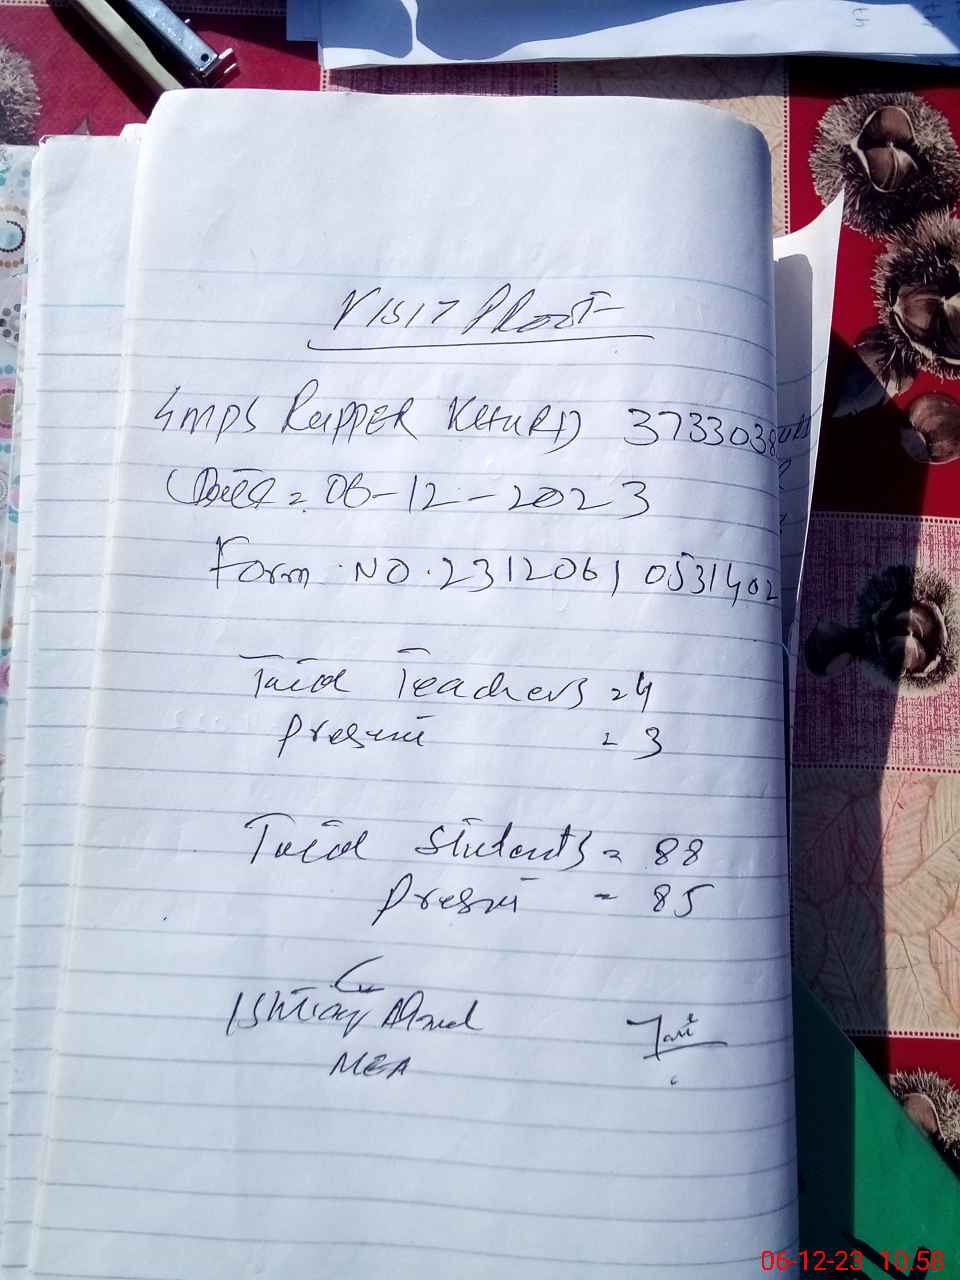 VISIT PROOF
GMPS RUPPER KHURD 3733038
Date = 06-12-2023
Form NO. 23120610531402
Total Teachers = 4
Present = 3
Total Students = 88
Present = 85
Ishtiaq Ahmed
MEA
06-12-23 10.58